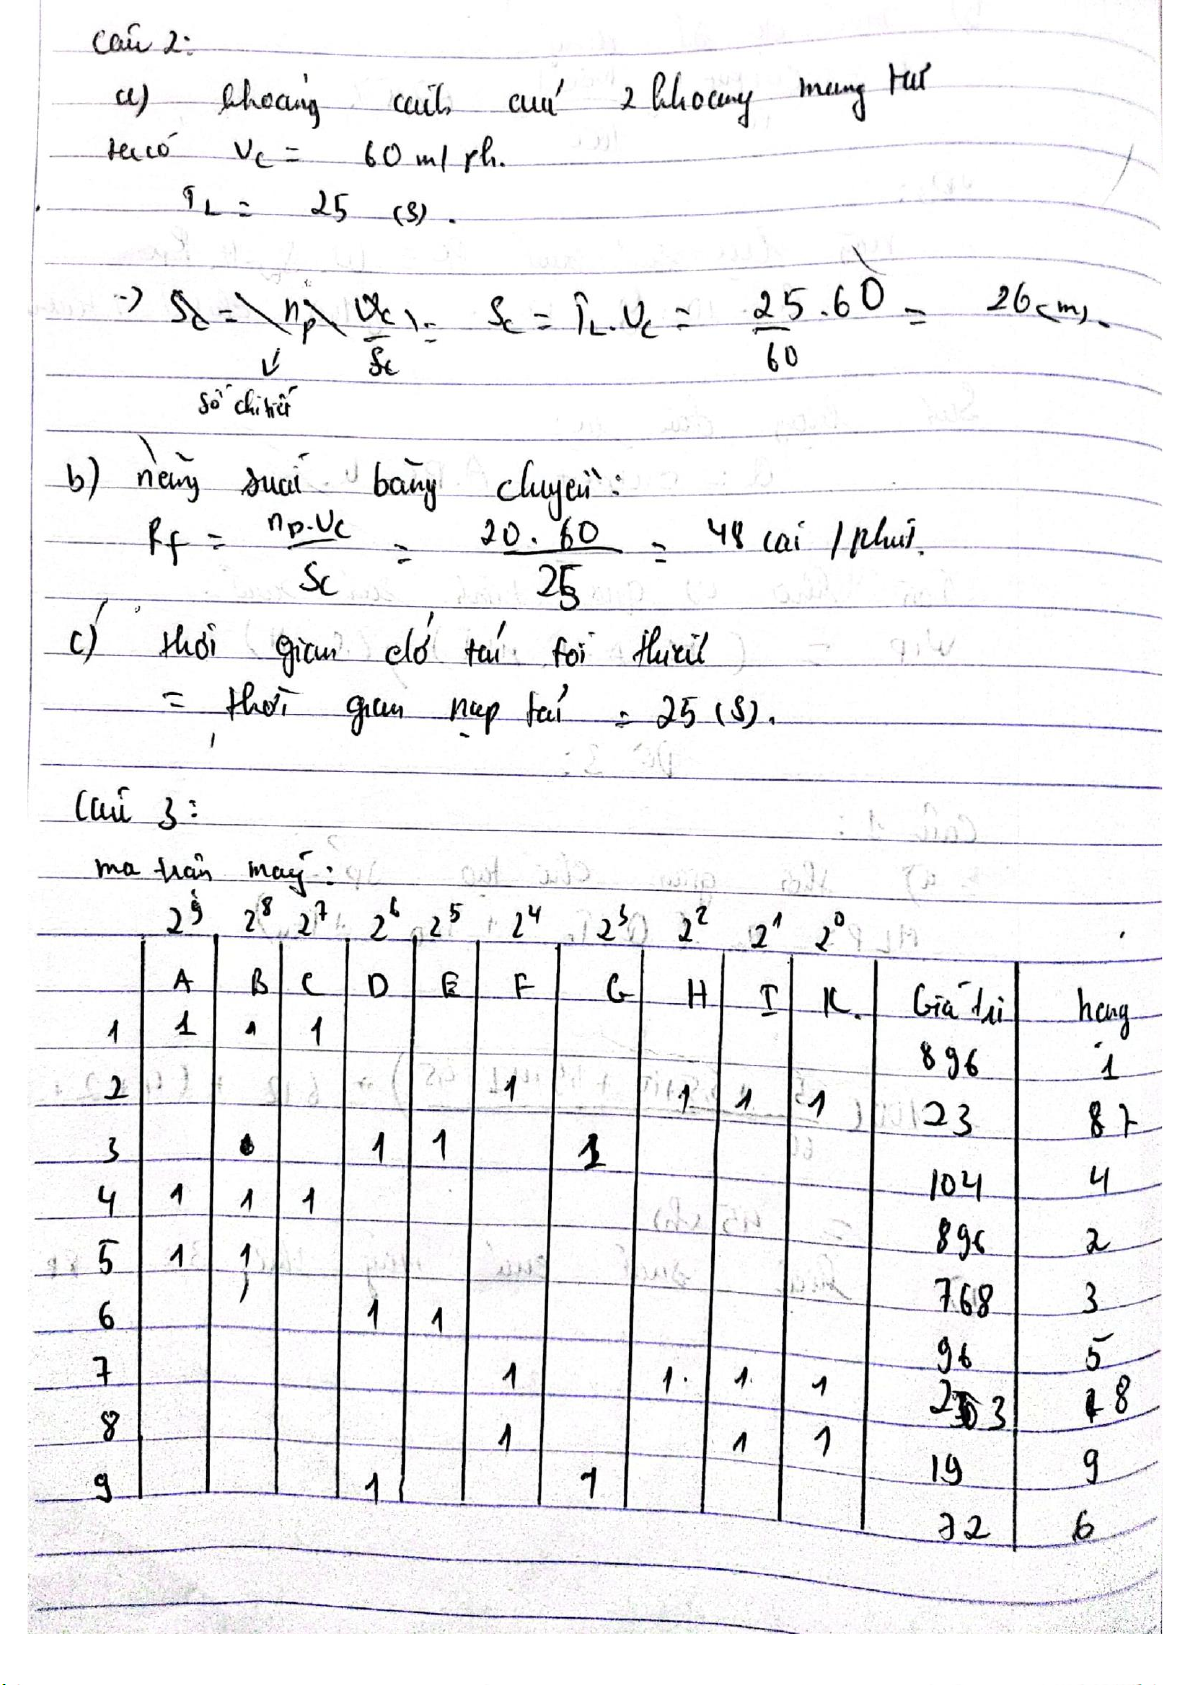 Câu 2:
a) khoảng cách của 2 khoang mang tải
ta có Vc = 60 m/ph.
TL = 25 (s).
-> Sc = np Vc / Sc = Sc = TL.Vc = 25.60 / 60 = 26 (m).
số chi tiết
b) năng suất băng chuyền:
Rf = np.Vc / Sc = 20.60 / 25 = 48 cái / phút.
c) thời gian dỡ tải tối thiểu
= thời gian nạp tải = 25 (s).
Câu 3:
ma trận máy:
2^9 2^8 2^7 2^6 2^5 2^4 2^3 2^2 2^1 2^0
A B C D E F G H I K. Giá trị hạng
1 1 1 1 896 1
2 1 1 1 1 23 7
3 1 1 1 104 4
4 1 1 1 896 2
5 1 1 768 3
6 1 1 96 5
7 1 1. 1. 1 23 8
8 1 1 1 19 9
9 1 1 72 6